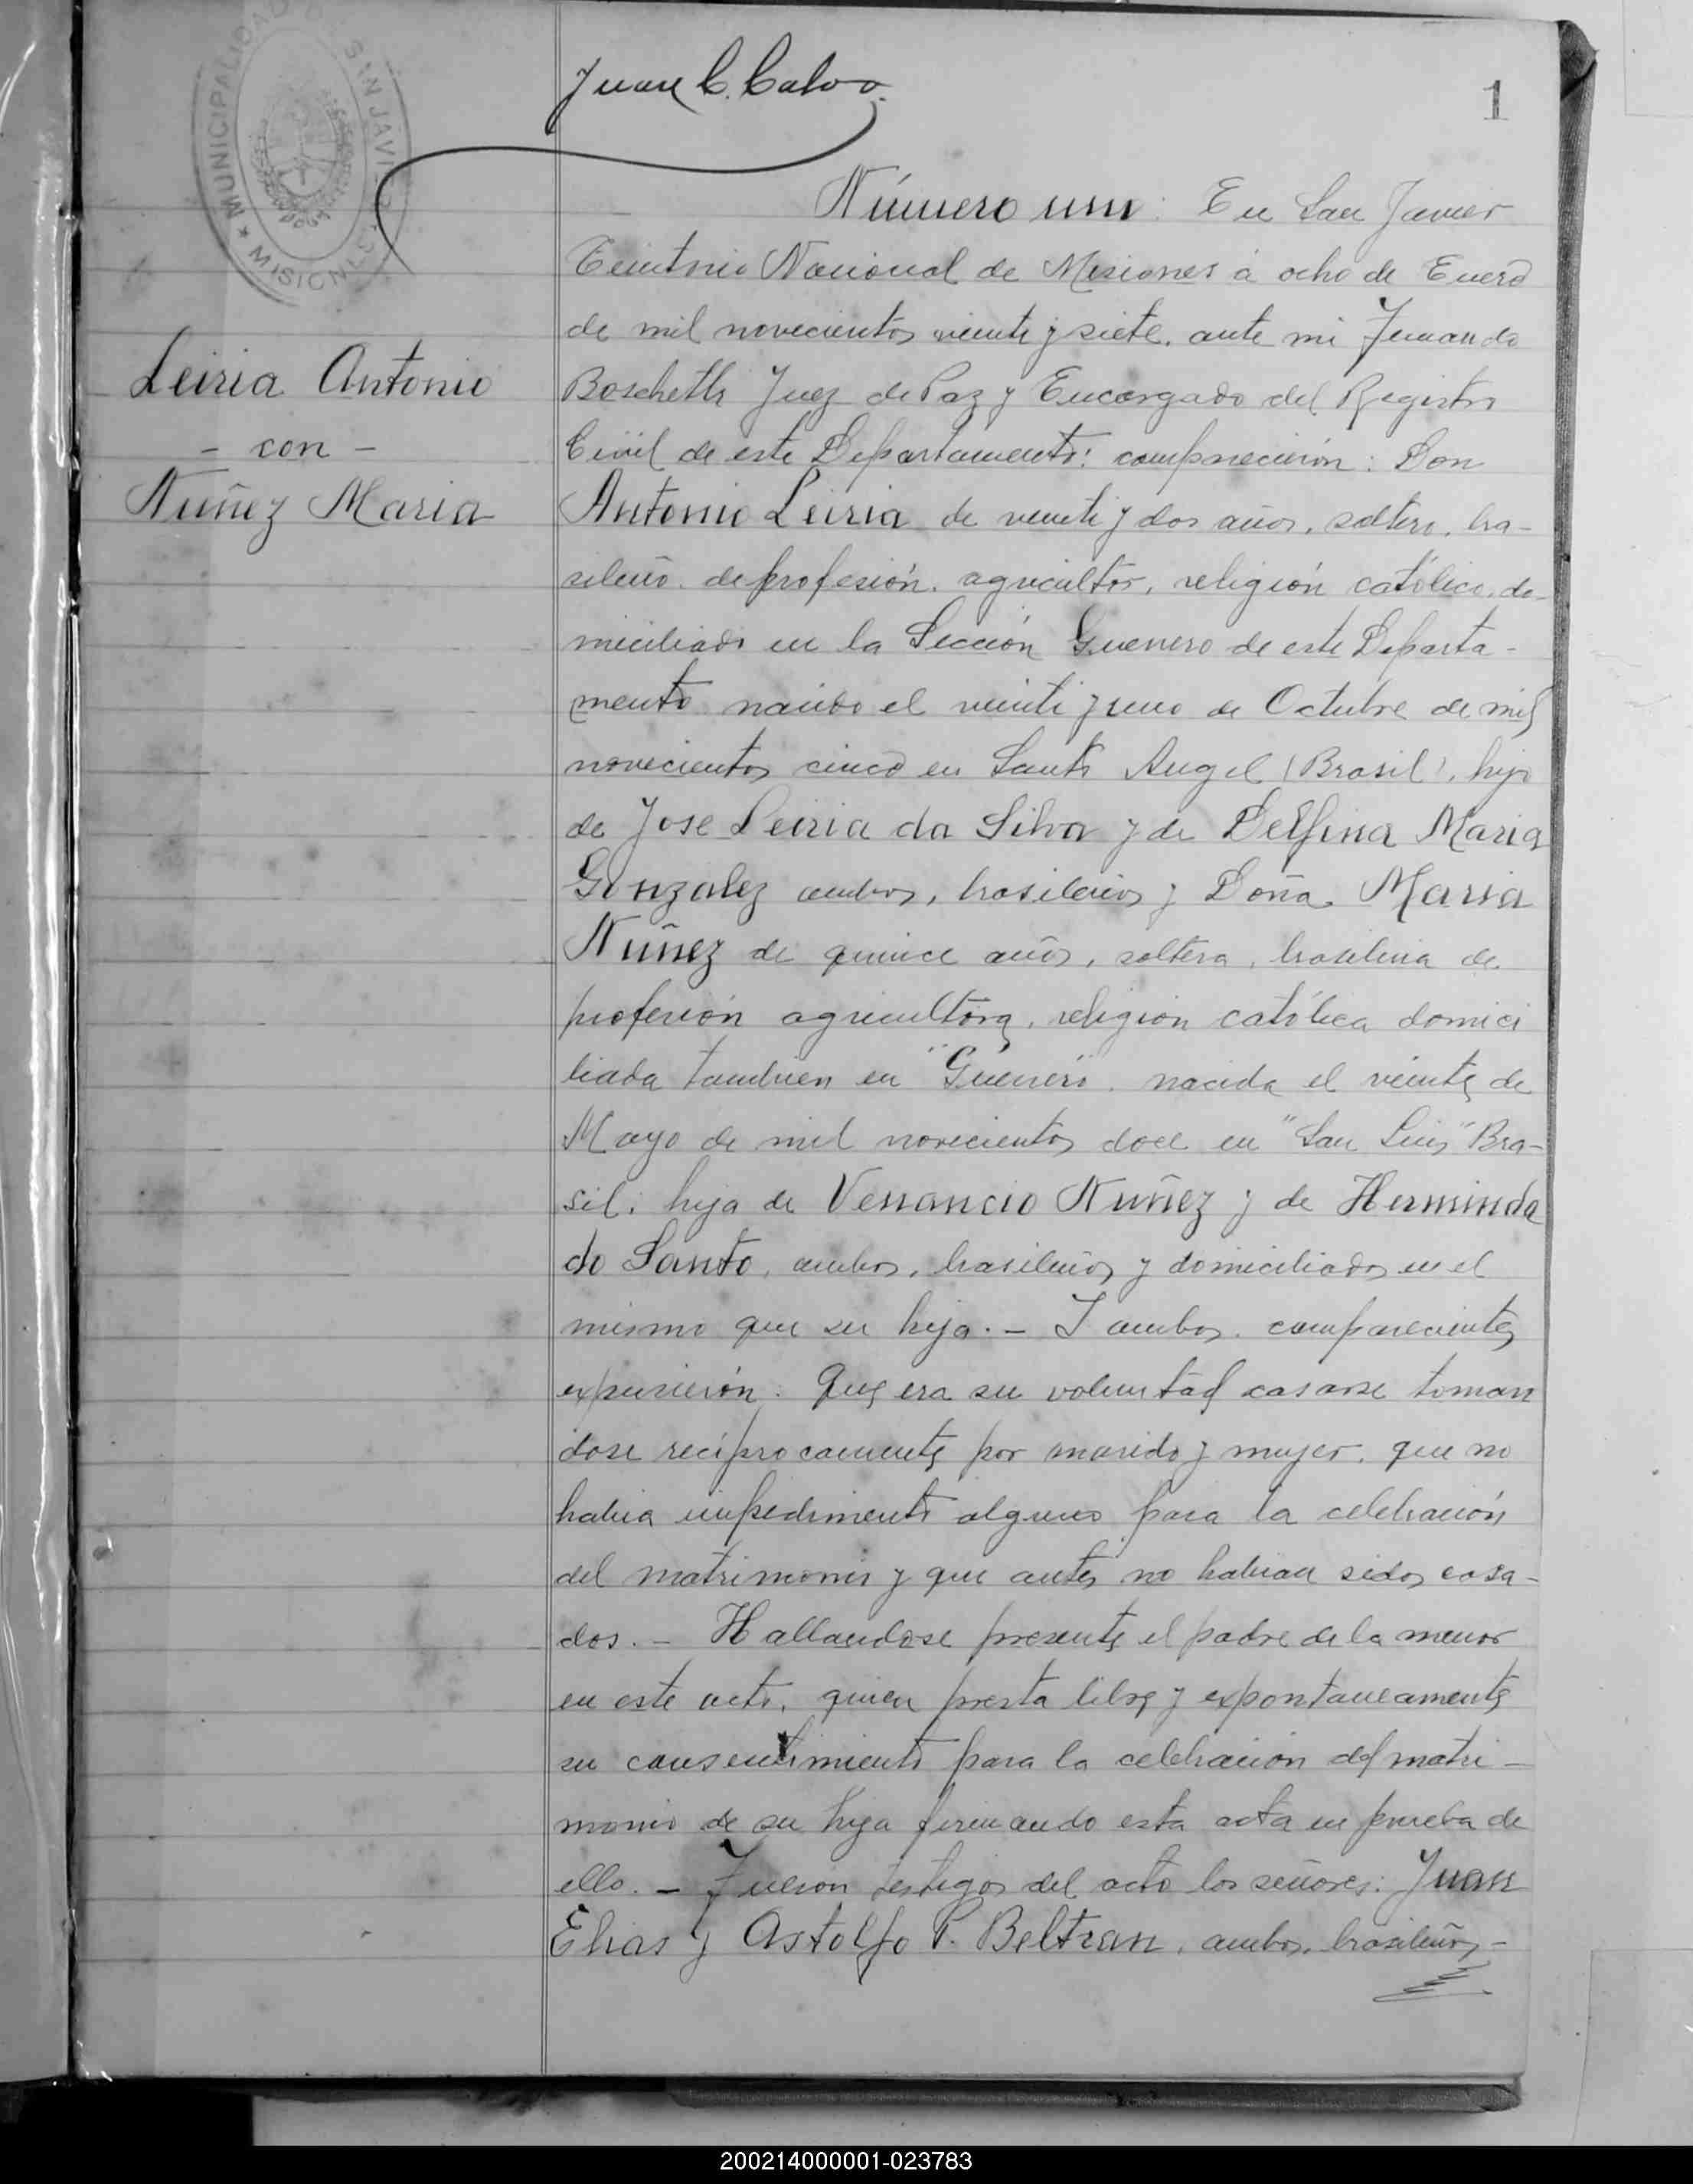 Juan C. Calvo
1
MUNICIPALIDAD DE SAN JAVIER
* MISIONES *
Número uno: En San Javier
Territorio Nacional de Misiones á ocho de Enero
de mil novecientos veinte y siete, ante mi Fernando
Leiria Antonio
- con -
Nuñez Maria
Boschetti Juez de Paz y Encargado del Registro
Civil de este Departamento: comparecieron: Don
Antonio Leiria de veinte y dos años, soltero, bra-
sileño, de profesión, agricultor, religión católica, do-
miciliado en la Sección Guerrero de este Departa-
mento nacido el veinte y uno de Octubre de mil
novecientos cinco en Santo Angel (Brasil), hijo
de Jose Leiria da Silva y de Delfina Maria
Gonzalez ambos, brasileños y Doña Maria
Nuñez de quince años, soltera, brasilena de
profesión agricultora, religion católica domici
liada tambien en "Guerrero", nacida el veinte de
Mayo de mil novecientos doce en "San Luis" Bra-
sil, hija de Venancio Nuñez y de Herminda
do Santo, ambos, brasileños y domiciliados en el
mismo que su hija. - I ambos, comparecientes
expusieron: Que era su voluntad casarse toman
dose reciprocamente por marido y mujer, que no
habia impedimento alguno para la celebración
del matrimonio y que antes no habian sidos casa-
dos. - Hallandose presente el padre de la menor
en este acto, quien presta libre y expontaneamente
su consentimiento para la celebracion del matri-
monio de su hija firmando esta acta en prueba de
ello. - Fueron testigos del acto los señores: Juan
Elias y Astolfo P. Beltran, ambos, brasileños, -
200214000001-023783